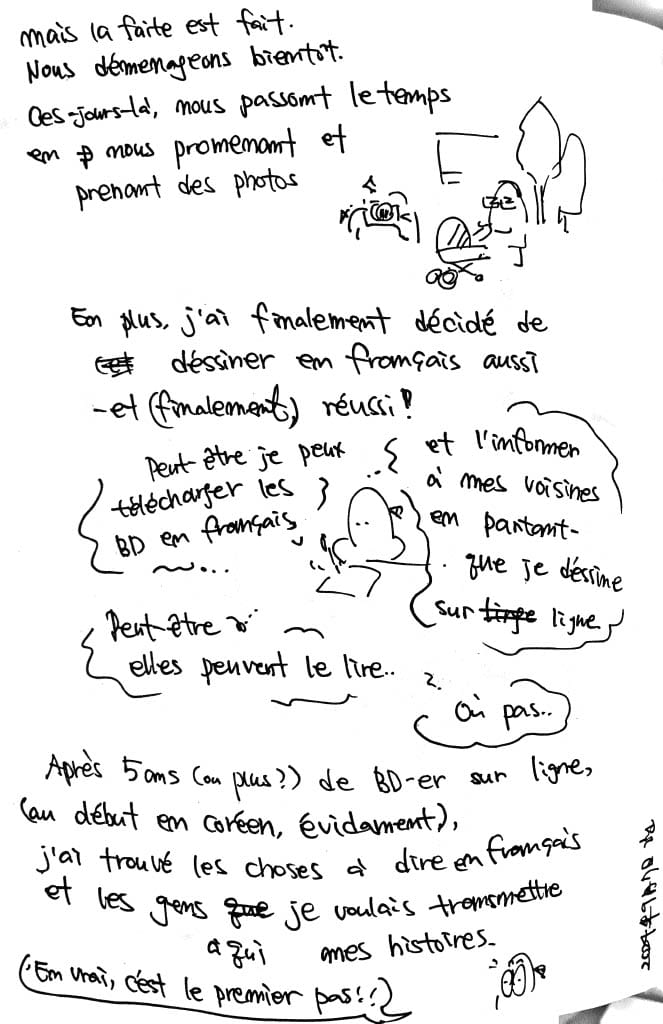 mais la faite est fait.
Nous démenageons bientôt.
Ces-jours-là, nous passont le temps
en nous promenant et
prenant des photos
En plus, j'ai finalement décidé de
déssiner en français aussi
-et (finalement) réussi!
Peut-être je peux
télécharger les
BD en français
~~...
et l'informer
à mes voisines
en partant-
que je déssine
sur ligne
Peut-être
elles peuvent le lire..
Où pas..
Après 5 ans (ou plus?) de BD-er sur ligne,
(au début en coréen, évidament),
j'ai trouvé les choses à dire en français
et les gens je voulais transmettre
à qui mes histoires.
(En vrai, c'est le premier pas!!)